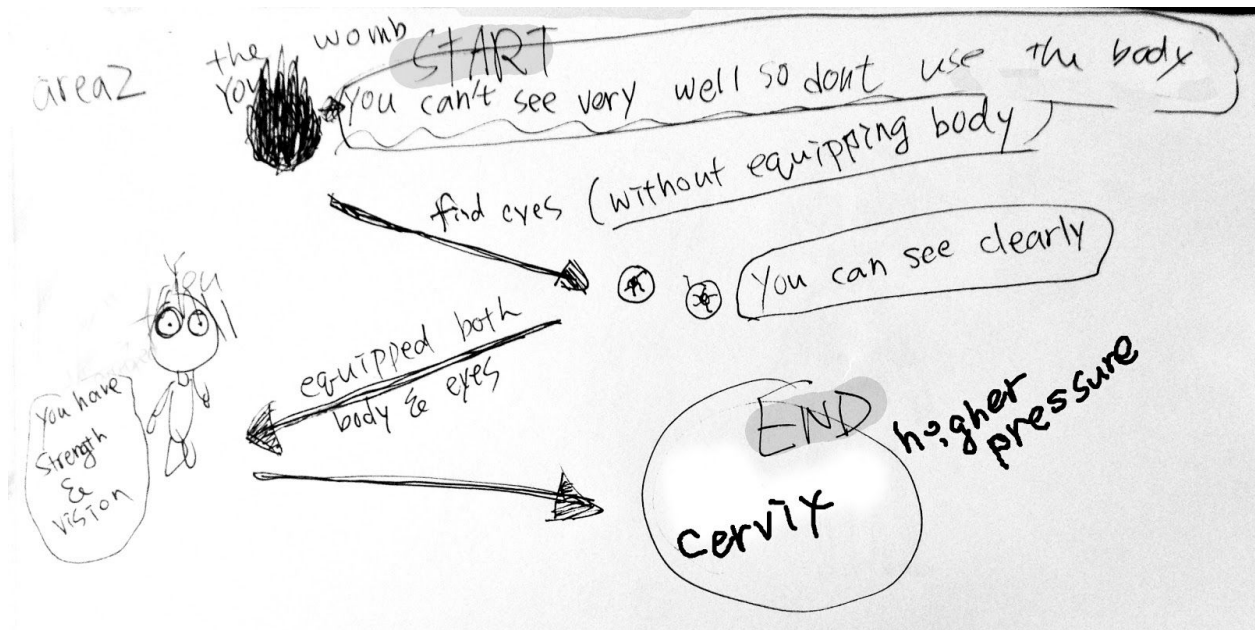 area2
the womb
START
You
you can't see very well so dont use the body
find eyes (without equipping body)
You can see clearly
You
equipped both
body & eyes
You have
Strength
&
vision
END
higher
pressure
cervix